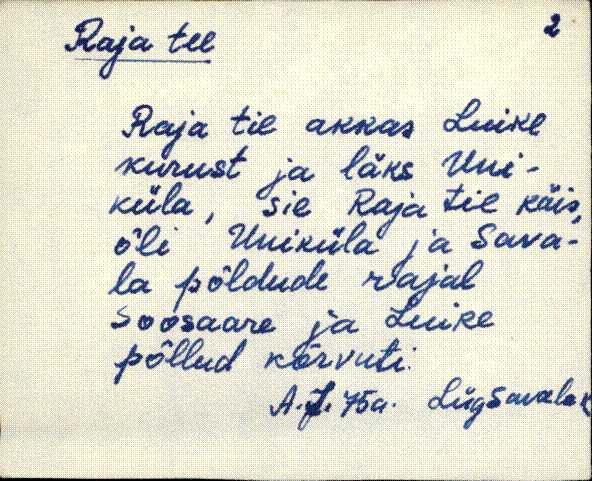 Raja tee 2
Raja tie akkas Luike
kurust ja läks Uni-
küla, sie Raja tie käis,
õli Uniküla ja Sava-
la põldude rajal
Soosaare ja Luike
põllud kõrvuti.
A. J. 75a. Lüg Savala k